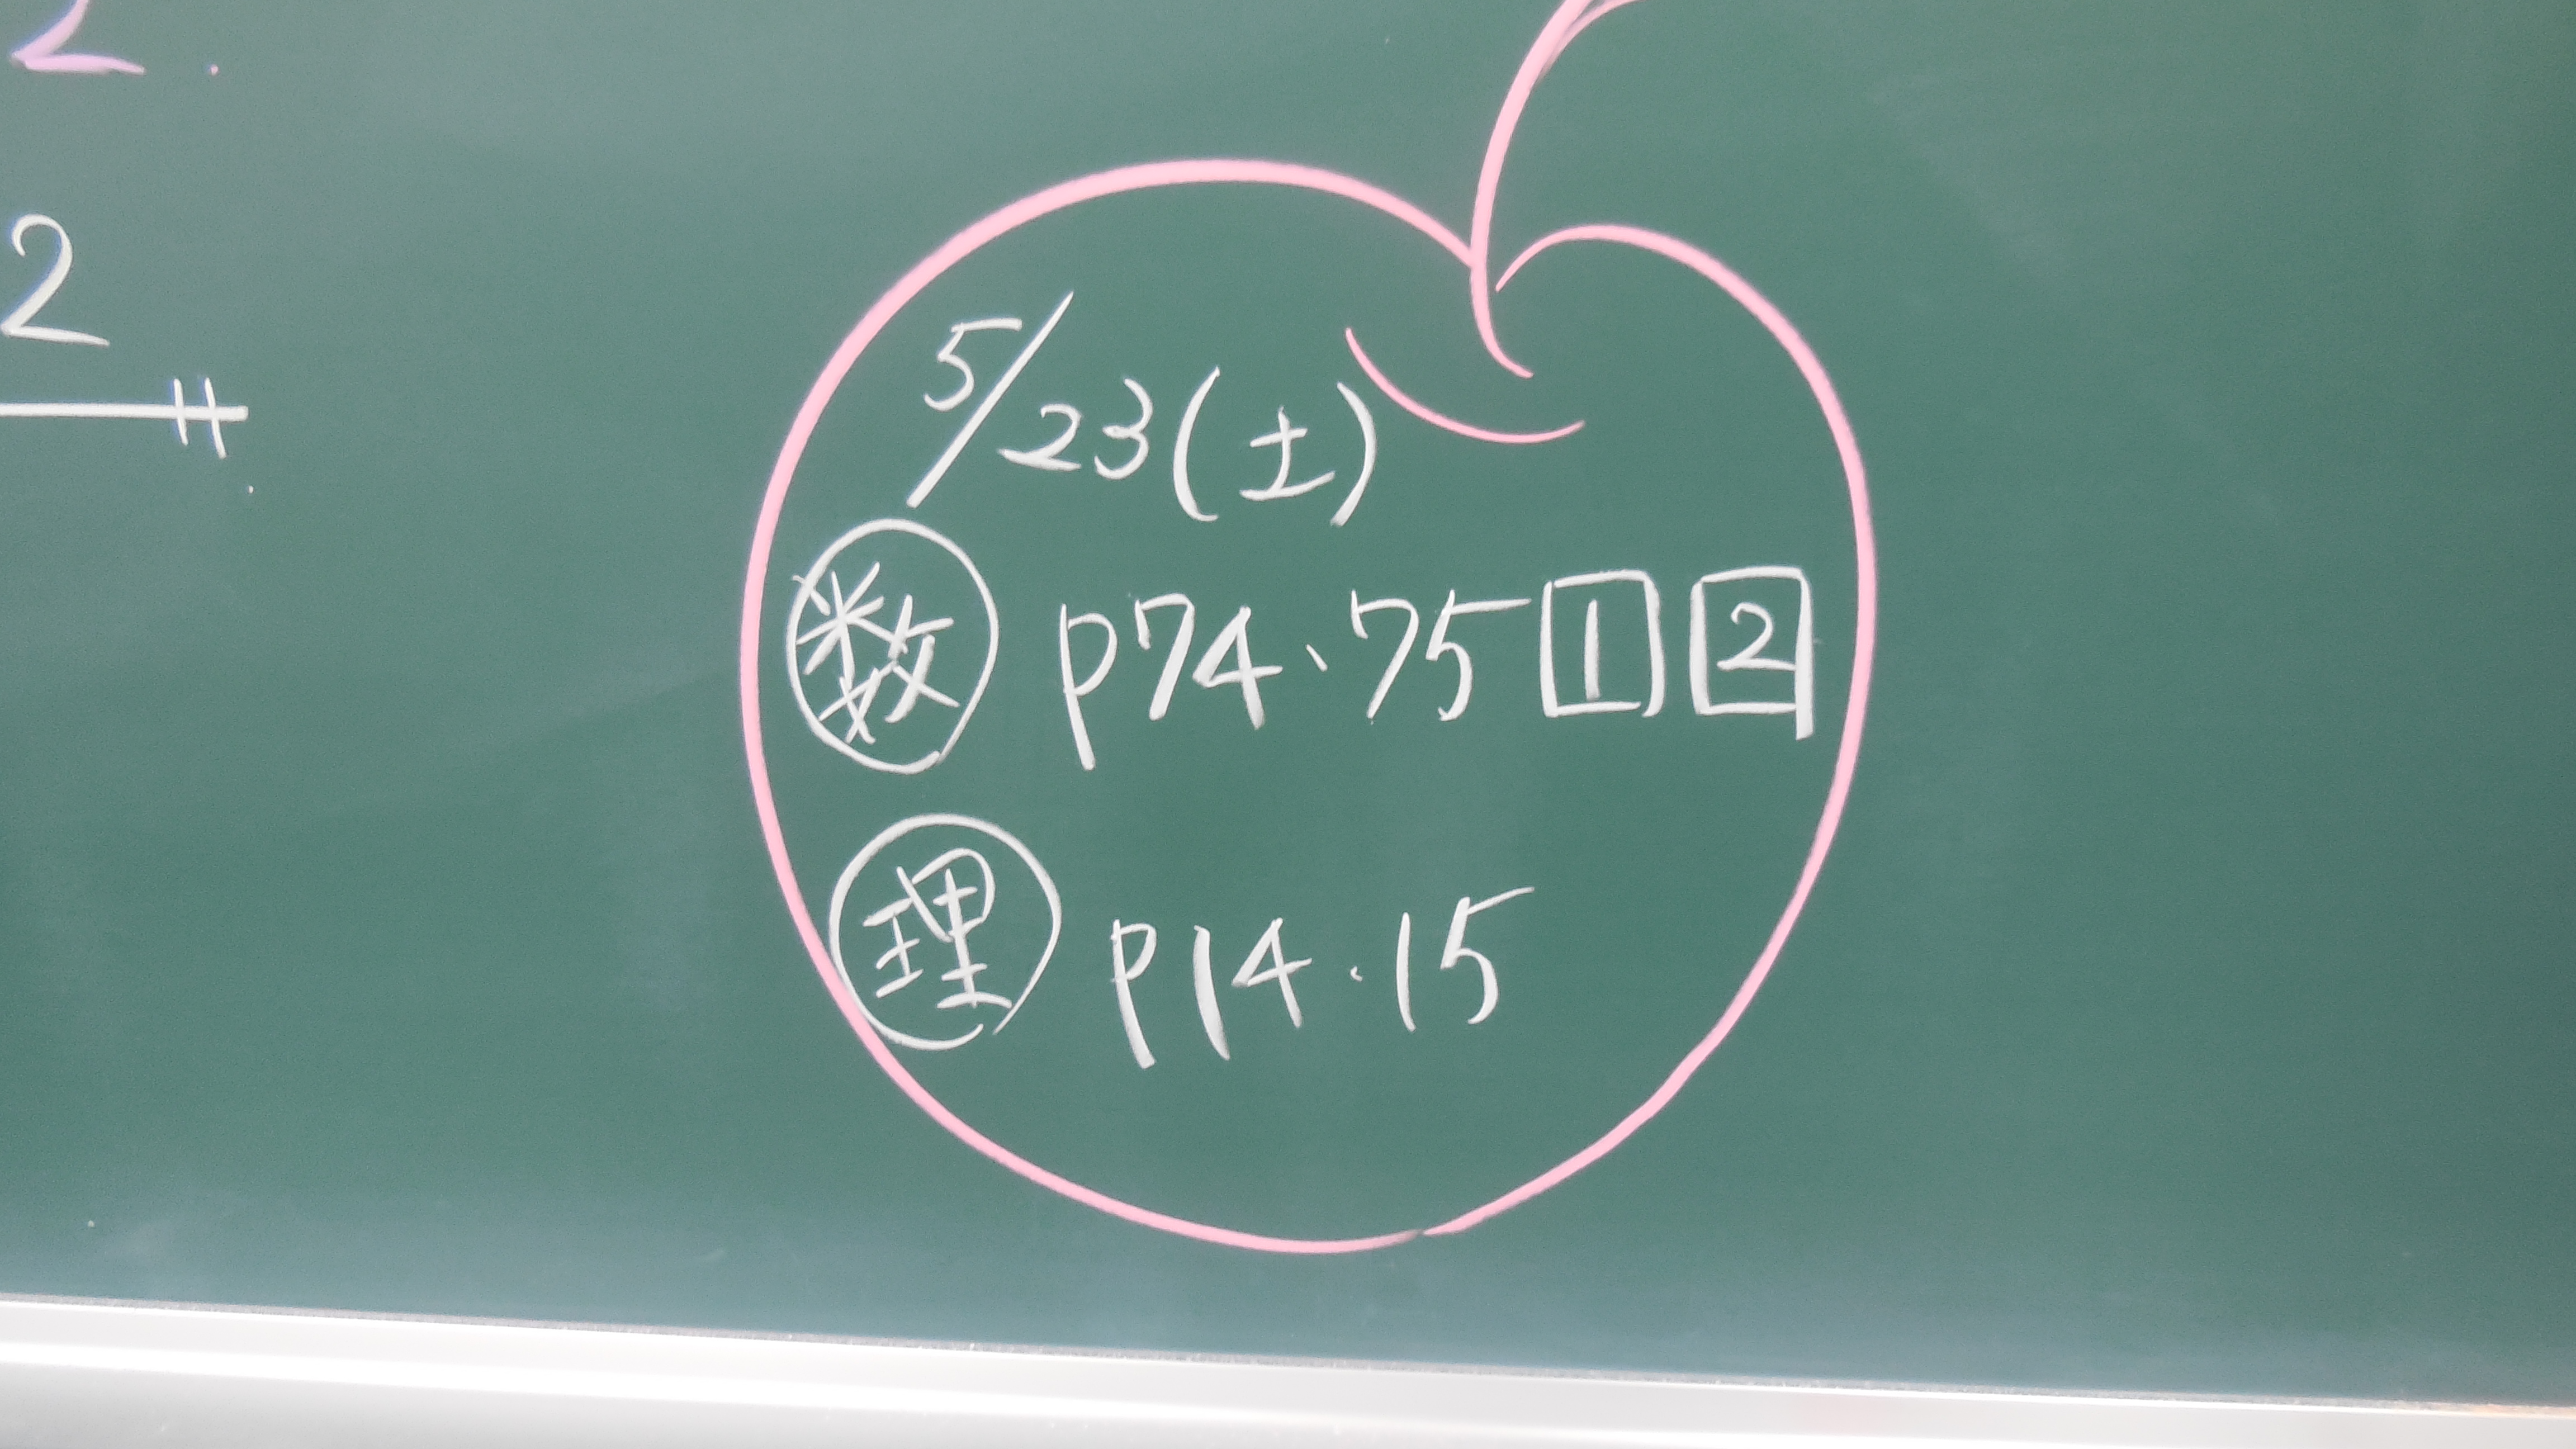 2.
2
5/23(土)
数 p74、75 1 2
理 p14・15